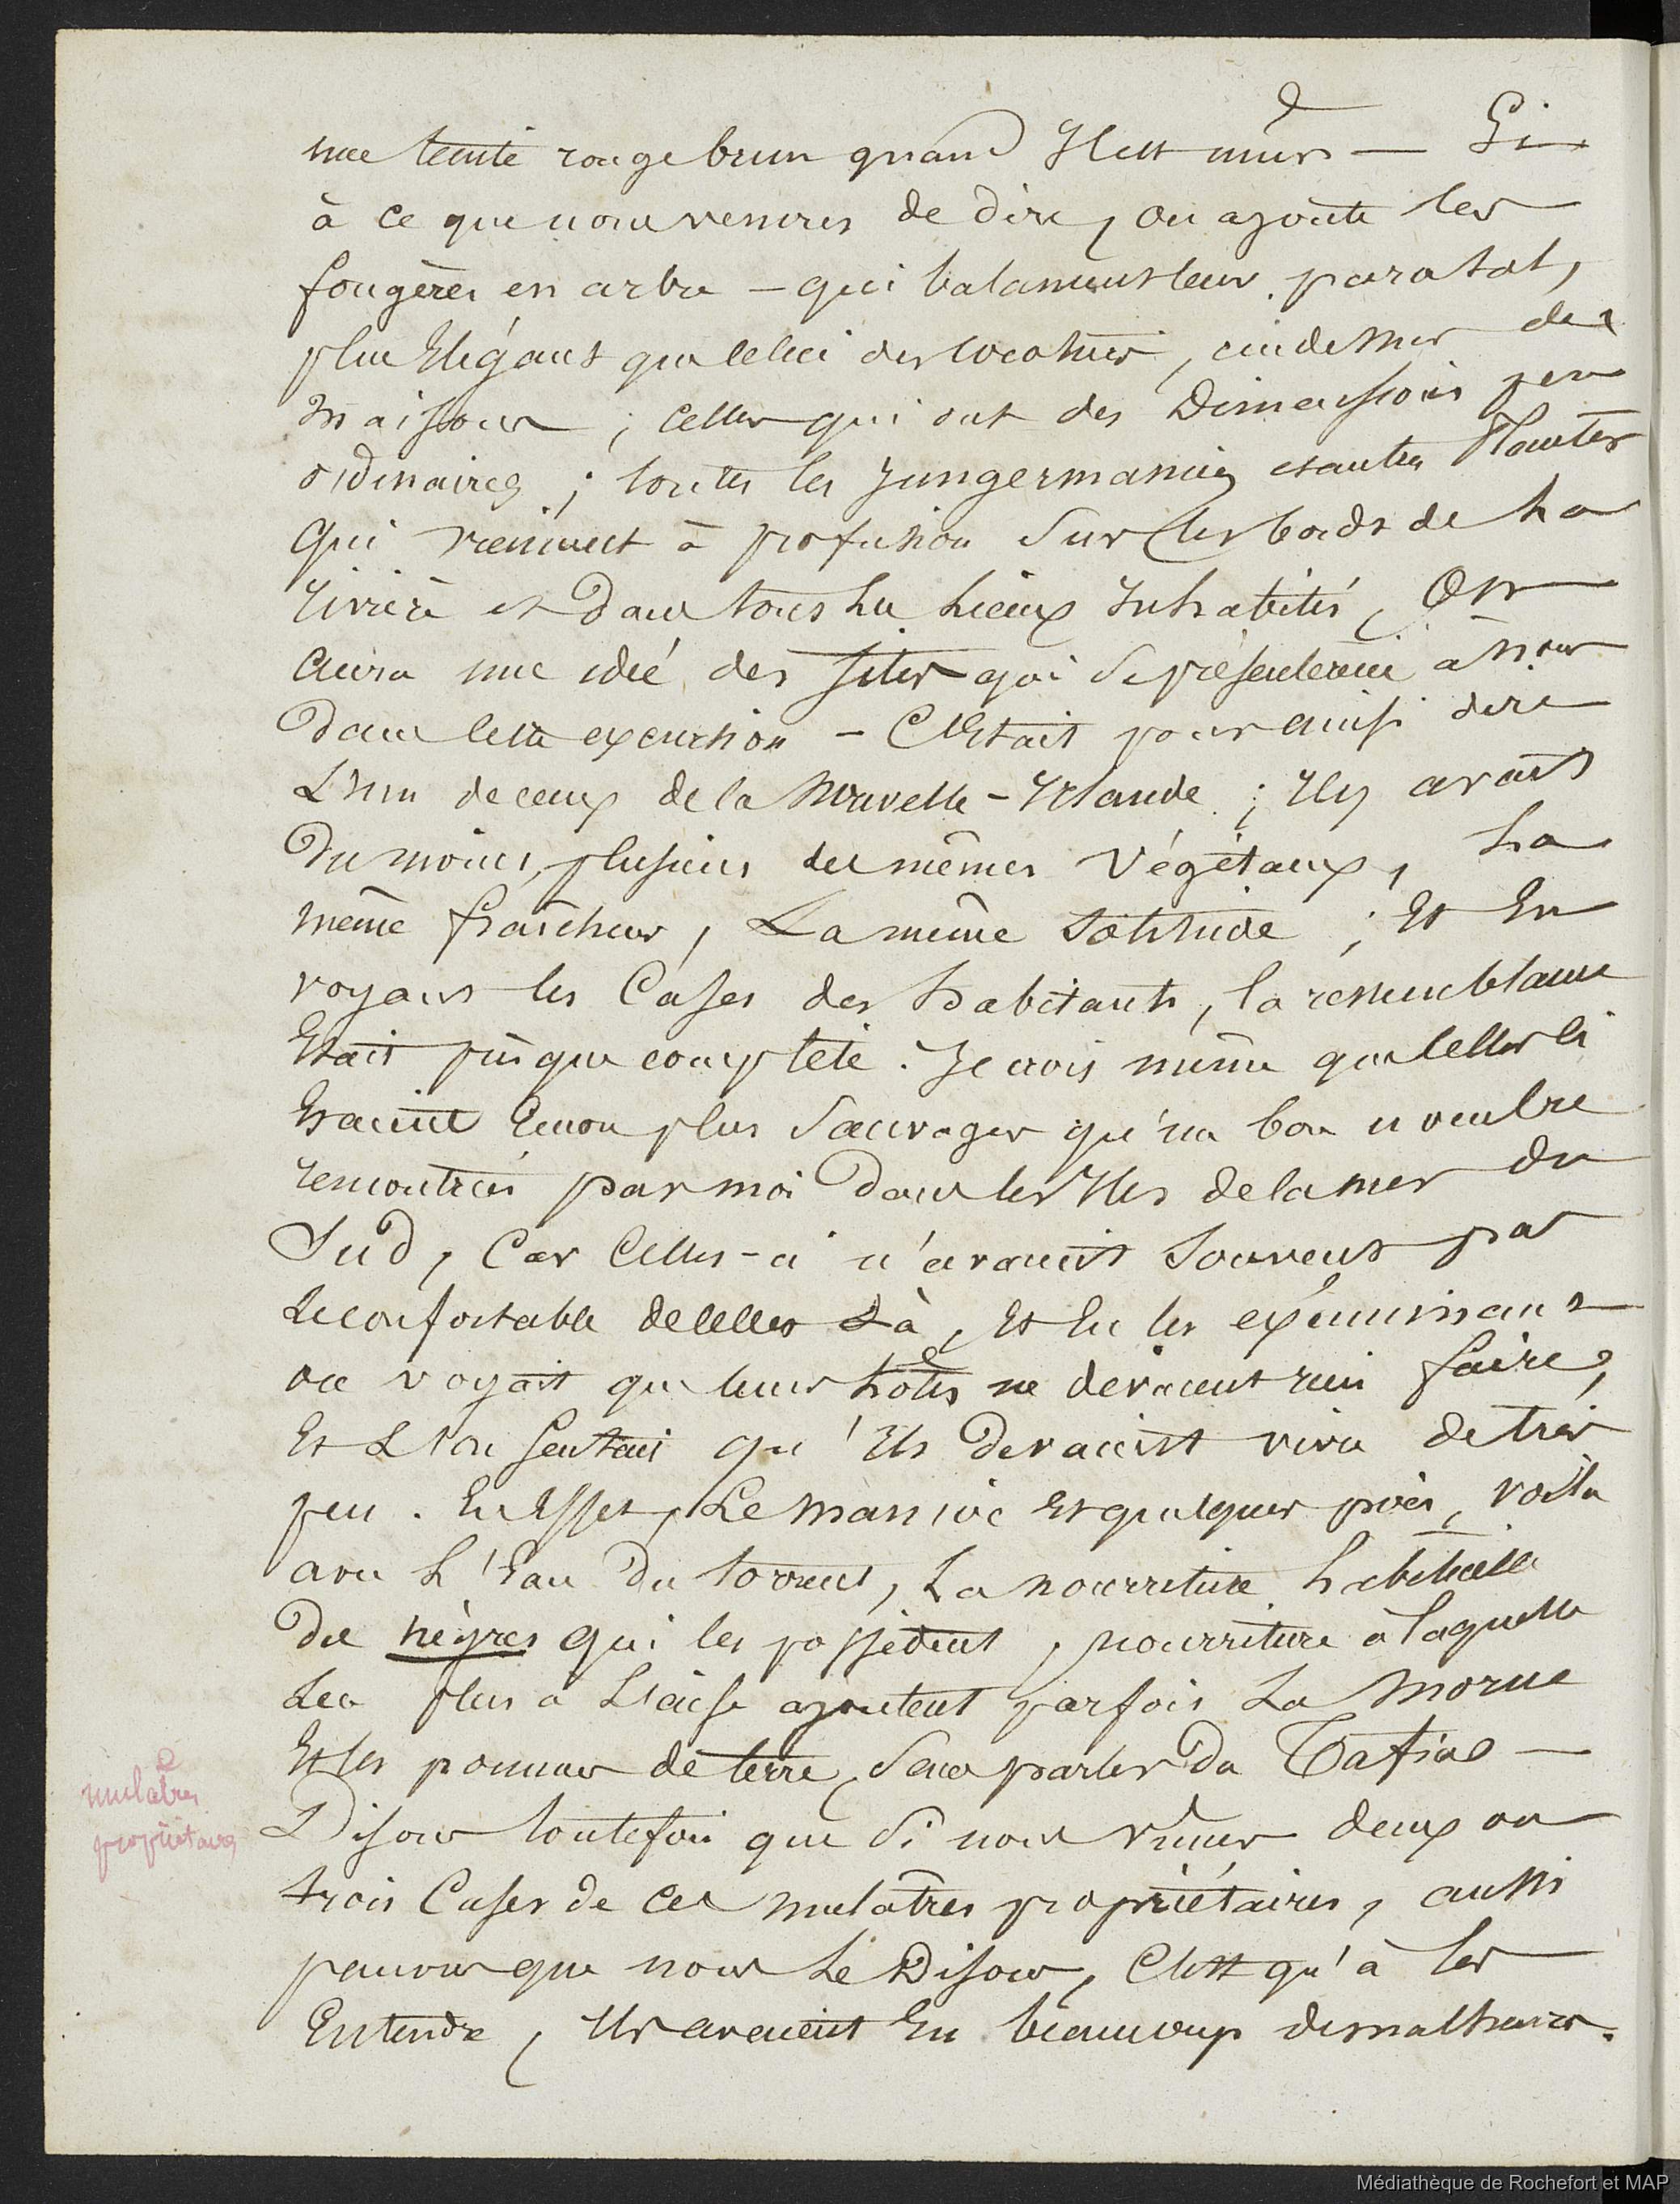 une teinte rouge brun quand Il est mûr — Si
à ce que nous venons de dire, on ajoute les
fougères en arbre — qui balancent leur parasol,
plus Elégant que celui des cocotiers, audessus des
maisons ; celles qui ont des Dimensions peu
ordinaires ; toutes les Jungermanies et autres Plantes
qui viennent à profusion sur les bords de La
rivière et dans tous Les Lieux Inhabités, On
aura une idée des sites qui se présentèrent à nous
dans cette excursion — C'Etait pour ainsi dire
L'un de ceux de la Nouvelle-Irlande ; Il y avait
du moins, plusieurs des mêmes végétaux, La
même fraîcheur, La même solitude ; Et En
voyant les Cases des habitants, la ressemblance
Etait presque complète. Je crois même que celles ci
Etaient Encor plus Sauvages qu'un bon nombre
rencontrées par moi dans les Iles de la mer du
Sud, Car Celles-ci n'avaient souvent pas
Le confortable de celles Là, Et En les examinant
on voyait que leurs hôtes ne devaient rien faire,
Et L'on sentait qu'Ils devaient vivre de très
peu. En Effet, Le manioc Et quelques pois, voilà
avec L'Eau du torrent, La nourriture habituelle
des nègres qui les possèdent, nourriture à laquelle
Les plus à L'aise ajoutent parfois La Morue
Et les pommes de terre, sans parler du Tafia —
mulatres
propriétaires
Disons toutefois que si nous vîmes deux ou
trois Cases de ces mulâtres propriétaires, aussi
pauvres que nous Le Disons, C'est qu'à les
Entendre, Ils avaient Eu beaucoup de malheurs.
Médiathèque de Rochefort et MAP